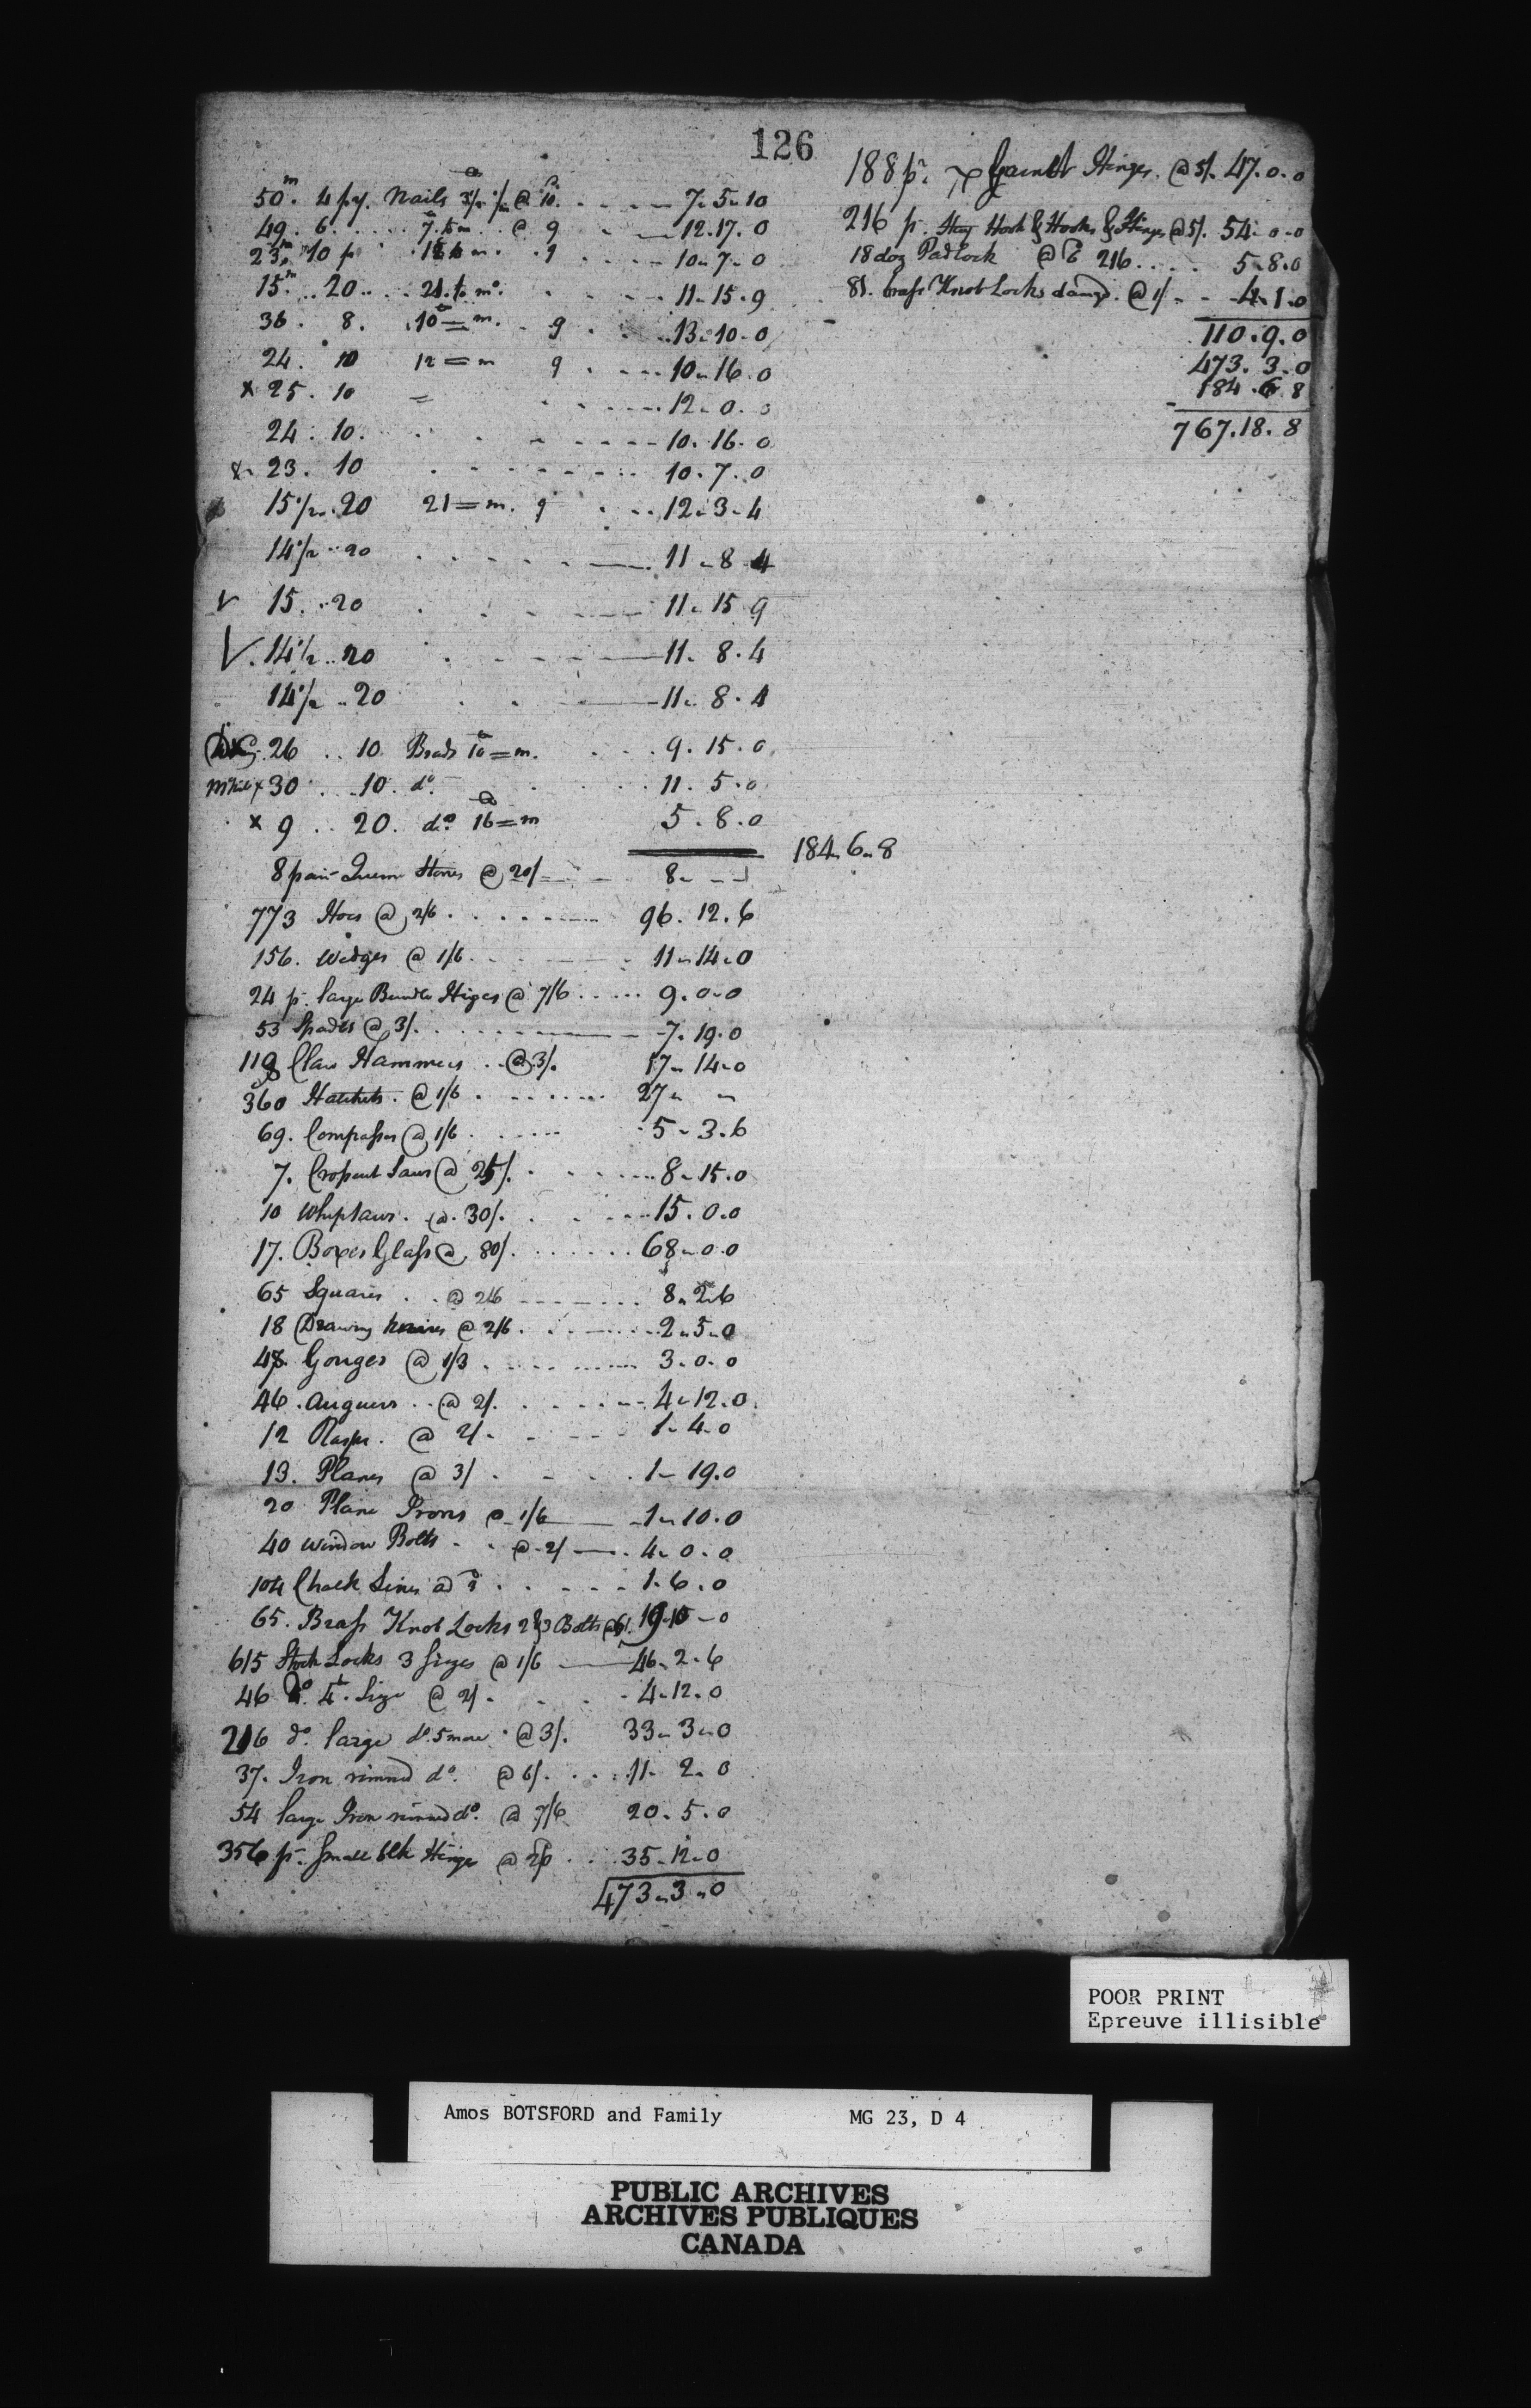 126
50m. 4 py. Nails 3/2 @ 10. 7. 5. 10
49. 6. 7. @ 9 12. 17. 0
23m 10 p 9 10. 7. 0
15m. 20. 21. 11. 15. 9
36. 8. 10 = m. 9 13. 10. 0
24. 10 12 = m 9 10. 16. 0
x 25. 10 = 12. 0. 0
24. 10. 10. 16. 0
x 23. 10 10. 7. 0
15 1/2 20 21 = m. 9 12. 3. 4
14 1/2 20 11. 8. 4
15. 20 11. 15. 9
14 1/2 20 11. 8. 4
14 1/2 20 11. 8. 4
26 10 Brads 10 = m. 9. 15. 0
x 30 10. do. 11. 5. 0
x 9 20. do. 16 = m 5. 8. 0
184. 6. 8
8 pair Stones @ 20/ 8
773 Hoes @ 2/6 96. 12. 6
156. Wedges @ 1/6 11. 14. 0
24 p. large Higes @ 7/6 9. 0. 0
53 Spades @ 3/. 7. 19. 0
118 Claw Hammers @ 3/. 17. 14. 0
360 Hatchets. @ 1/6 27
69. Compasses @ 1/6 5. 3. 6
7. Crosscut Saws @ 25/. 8. 15. 0
10 Whipsaws. @ 30/. 15. 0. 0
17. Boxes Glass @ 80/. 68. 0. 0
65 Squares @ 2/6 8. 2. 6
18 Drawing knives @ 2/6 2. 5. 0
48. Gouges @ 1/3 3. 0. 0
46. Auguers @ 2/. 4. 12. 0
12 Rasps. @ 2/. 1. 4. 0
13. Planes @ 3/. 1. 19. 0
20 Plane Irons @ 1/6 1. 10. 0
40 Window Bolts @ 2/ 4. 0. 0
104 Chalk Lines 1. 6. 0
65. Brass Knob Locks 2 & 3 Bolts @ 6/. 19. 10. 0
615 Stock Locks 3 Sizes @ 1/6 46. 2. 6
46 do. 4t. Size @ 2/. 4. 12. 0
216 do. large do. 5 more @ 3/. 33. 3. 0
37. Iron rimmed do. @ 6/. 11. 2. 0
54 large Iron rimmed do. @ 7/6 20. 5. 0
356 p. Small Hinge @ 2/0 35. 12. 0
473. 3. 0
188 p. Hinges. @ 5/. 47. 0. 0
216 p. Hooks & Hinges @ 5/. 54. 0. 0
18 doz Padlock @ 5. 8. 0
81. brass Knob Locks damgd. @ 1/ 4. 1. 0
110. 9. 0
473. 3. 0
184. 6. 8
767. 18. 8
POOR PRINT
Epreuve illisible
Amos BOTSFORD and Family MG 23, D 4
PUBLIC ARCHIVES
ARCHIVES PUBLIQUES
CANADA